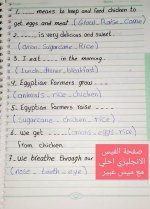 1. ...... means to keep and feed chicken to
get eggs and meat. (Grow. Raise. Come)
2. ...... is very delicious and sweet.
(Onion. Sugarcane. Rice)
3. I eat ..... in the morning.
(lunch. dinner. breakfast)
4. Egyptian farmers grow ....
(animals. rice. chicken)
5. Egyptian farmers raise ....
(Sugarcane. chicken. rice)
6. We get ...... (onions. eggs. rice)
from chicken.
7. We breathe through our
(nose. teeth. eye)
صفحة الفيس
الانجليزي احلي
مع ميس عبير